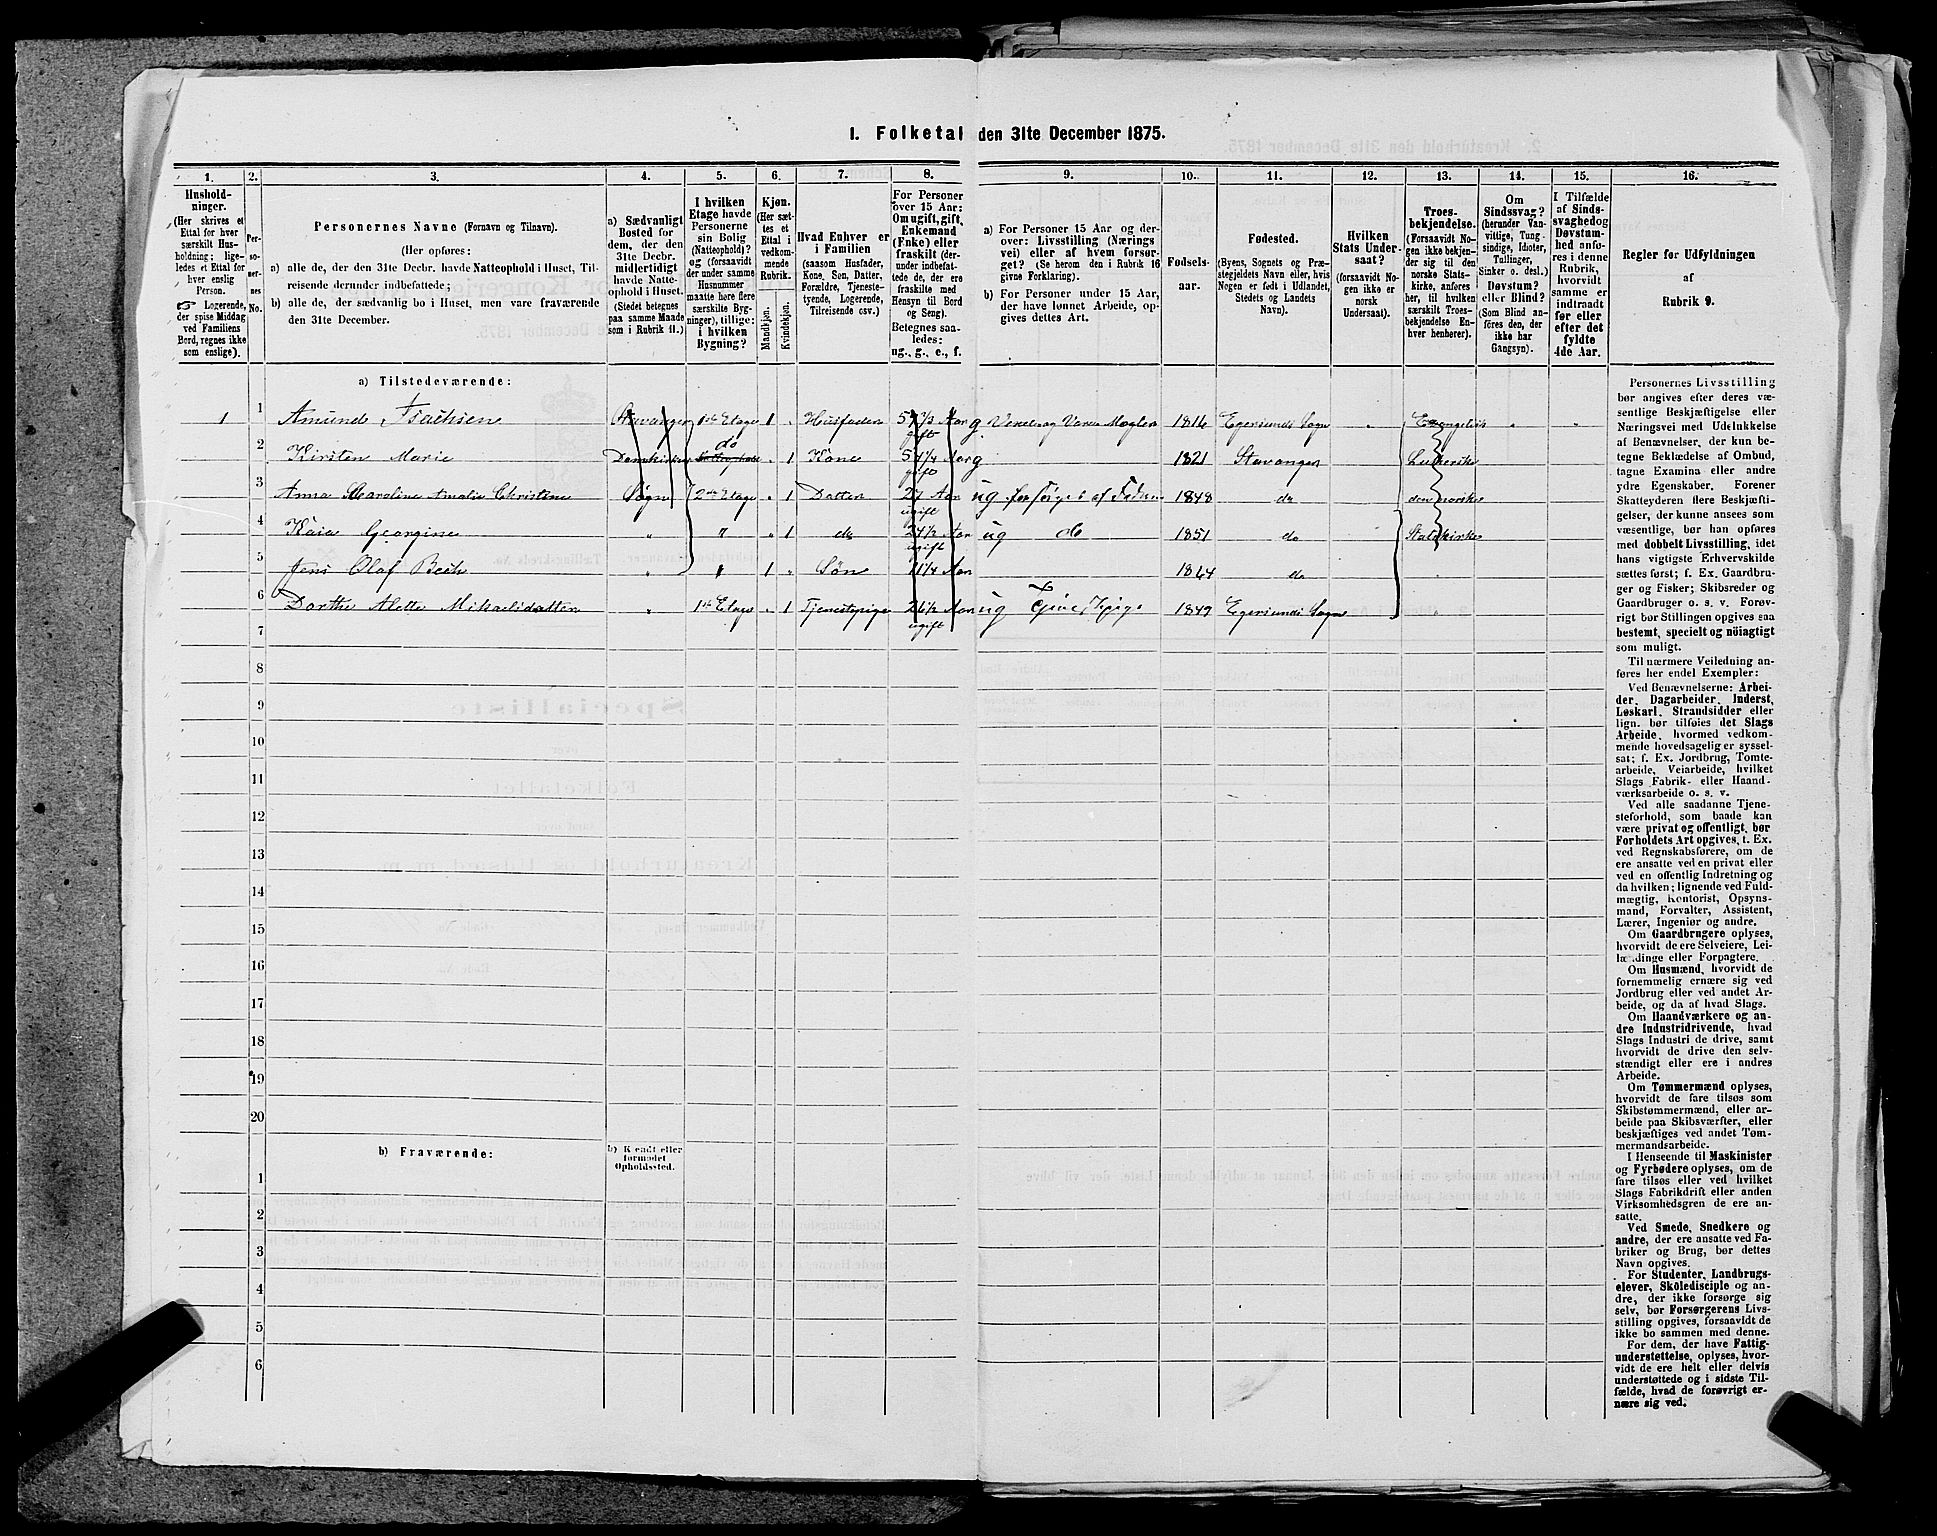 1. Folketal den 31te December 1875.
1. 2. 3. 4. 5. 6. 7. 8. 9. 10. 11. 12. 13. 14. 15. 16.
Hushold-
ninger.
(Her skrives et
Ettal for hver
særskilt Hus-
holdning; lige-
ledes et Ettal for
hver enslig
Person.
☞ Logerende,
der spise Middag
ved Familiens
Bord, regnes ikke
som enslige).
Per-
so-
ner-
nes
No.
Personernes Navne (Fornavn og Tilnavn).
(Her opføres:
a) alle de, der den 31te Decbr. havde Natteophold i Huset, Til-
reisende derunder indbefattede;
b) alle de, der sædvanlig bo i Huset, men vare fraværende
den 31te December.
a) Sædvanligt
Bosted for
dem, der den
31te Decbr.
midlertidigt
havde Natte-
ophold i Huset.
(Stedet betegnes
paa samme Maade
som i Rubrik 11.)
I hvilken
Etage havde
Personerne
sin Bolig
(Natteophold)?
og (forsaavidt
der under samme
Husnummer
maatte høre flere
særskilte Byg-
ninger), tillige:
i hvilken
Bygning?
Kjøn.
(Her sæt-
tes et
Ettal i
vedkom-
mende
Rubrik.
Mandkjøn.
Kvindekjøn.
Hvad Enhver er
i Familien
(saasom Husfader,
Kone, Søn, Datter,
Forældre, Tjeneste-
tyende, Logerende,
Tilreisende osv.)
For Personer
over 15 Aar:
Om ugift, gift,
Enkemand
(Enke) eller
fraskilt (der-
under indbefat-
tede de, der ere
fraskilte med
Hensyn til Bord
og Seng).
Betegnes saa-
ledes:
ug., g., e., f.
a) For Personer 15 Aar og der-
over: Livsstilling (Nærings
vei) eller af hvem forsør-
get? (Se herom den i Rubrik 16
givne Forklaring).
b) For Personer under 15 Aar,
der have lønnet Arbeide, op-
gives dettes Art.
Fødsels-
aar.
Fødested.
(Byens, Sognets og Præ-
stegjeldets Navn eller, hvis
Nogen er født i Udlandet,
Stedets og Landets
Navn).
Hvilken
Stats Under-
saat?
(forsaavidt No-
gen ikke er
norsk
Undersaat).
Troes-
bekjendelse.
(Forsaavidt No-
gen ikke bekjen-
der sig til den
norske Stats-
kirke, anføres
her, til hvilken
særskilt Troes-
bekjendelse En-
hver henhører).
Om
Sindssvag?
(herunder Van-
vittige, Tung
sindige, Idioter,
Tullinger,
Sinker o. desl.)
Døvstum?
eller Blind?
(Som Blind an-
føres den, der
ikke har
Gangsyn).
I Tilfælde
af Sinds-
svaghed og
Døvstum-
hed anfø-
res i denne
Rubrik,
hvorvidt
samme er
indtraadt
før eller
efter det
fyldte
4de Aar.
Regler for Udfyldningen
af
Rubrik 9.
a) Tilstedeværende:
1 1 Amund Isachsen Stavanger 1ste Etage 1 „ Husfader gift g Vexel og Vare Mægler 1816 Egersunds Sogn „ Evangelisk „ „
2 Kirsten Marie Domkirkes do „ 1 Kone 54 1/4 Aar gift g 1821 Stavanger Lutherske
3 Anna Karoline Amalie Christine Sogn 2den Etage „ 1 Datter 27 Aar ugift ug forsørget af Faderen 1848 do den norske
4 Kaia Georgine „ „ „ 1 do 24 1/2 Aar ugift ug do 1851 do Statskirke
5 Jens Olaf Bech „ „ 1 „ Søn 11 1/4 Aar 1864 do „
6 Dorthe Alette Mikaelsdatter „ 1ste Etage „ 1 Tjenestepige 26 1/2 Aar ugift ug Tjenestepige 1849 Egersunds Sogn „
7
8
9
10
11
12
13
14
15
16
17
18
19
20
b) Fraværende:
b) Kjendt eller
formodet
Opholdssted.
1
2
3
4
5
6
Personernes Livsstilling
bør angives efter deres væ-
sentlige Beskjæftigelse eller
Næringsvei med Udelukkelse
af Benævnelser, der kun be-
tegne Beklædelse af Ombud,
tagne Examina eller andre
ydre Egenskaber. Forener
Skatteyderen flere Beskjæfti-
gelser, der kunne ansees som
væsentlige, bør han opføres
med dobbelt Livsstilling, idet
hans vigtigste Erhvervskilde
sættes først; f. Ex. Gaardbru-
ger og Fisker; Skibsreder og
Gaardbruger o. s. v. Forøv-
rigt bør Stillingen opgives saa
bestemt, specielt og nöiagtigt
som muligt.
Til nærmere Veiledning an-
føres her endel Exempler:
Ved Benævnelserne: Arbei-
der, Dagarbeider, Inderst,
Løskarl, Strandsidder eller
lign. bør tilføies det Slags
Arbeide, hvormed vedkom-
mende hovedsagelig er syssel-
sat; f. Ex. Jordbrug, Tomte-
arbeide, Veiarbeide, hvilket
Slags Fabrik- eller Haand-
værksarbeide o. s. v.
Ved alle saadanne Tjene-
steforhold, som baade kan
være privat og offentligt, bør
Forholdets Art opgives, t. Ex.
ved Regnskabsførere, om de
ere ansatte ved en privat eller
ved en offentlig Indretning og
da hvilken; lignende ved Fuld-
mægtig, Kontorist, Opsyns-
mand, Forvalter, Assistent,
Lærer, Ingeniør og andre.
Om Gaardbrugere oplyses,
hvorvidt de ere Selveiere, Lei-
lændinge eller Forpagtere.
Om Husmænd, hvorvidt de
fornemmelig ernære sig ved
Jordbrug eller ved andet Ar-
beide, og da af hvad Slags.
Om Haandværkere og an-
dre Industridrivende, hvad
Slags Industri de drive, samt
hvorvidt de drive den selv-
stændigt eller ere i andres
Arbeide.
Om Tømmermænd oplyses,
hvorvidt de fare tilsøs som
Skibstømmermænd, eller ar-
beide paa Skibsværfter, eller
beskjæftiges ved andet Tøm-
mermandsarbeide.
I Henseende til Maskinister
og Fyrbødere oplyses, om de
fare tilsøs eller ved hvilket
Slags Fabrikdrift eller anden
Virksomhedsgren de ere an-
satte.
Ved Smede, Snedkere og
andre, der ere ansatte ved Fa-
briker og Brug, bør dettes
Navn opgives.
For Studenter, Landbrugs-
elever, Skoledisciple og an-
dre, der ikke forsørge sig
selv, bør Forsørgerens Livs-
stilling opgives, forsaavidt de
ikke bo sammen med denne.
For dem, der have Fattig-
understøttelse, oplyses, hvor-
vidt de ere helt eller delvis
understøttede og i sidste Til-
fælde, hvad de forøvrigt er-
nære sig ved.